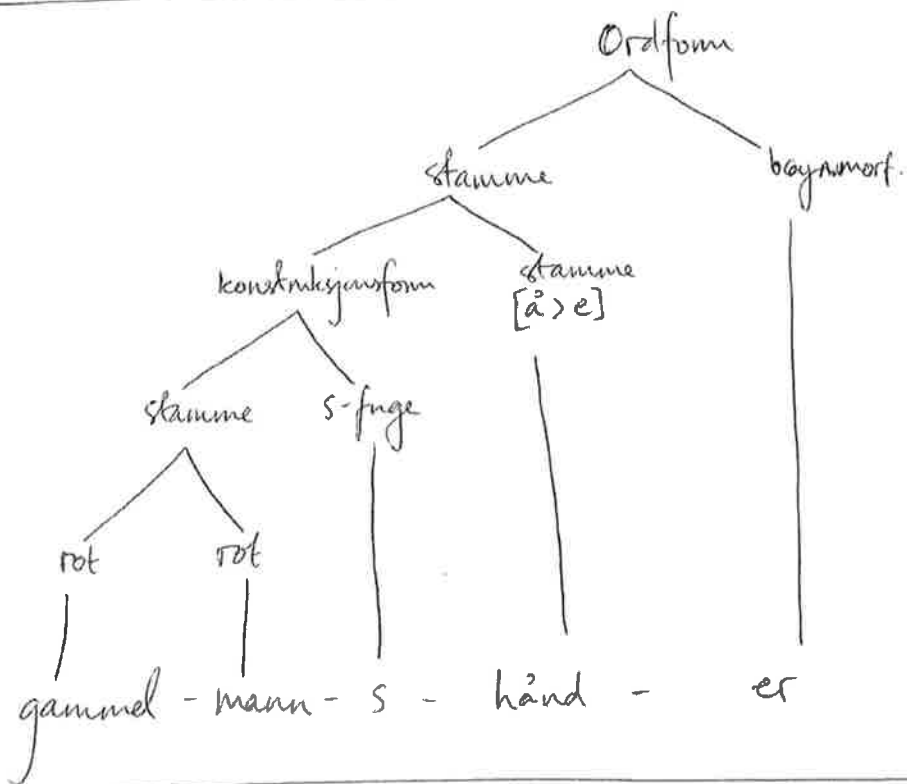 Ordform
stamme bøyn.morf.
konstruksjonsform stamme
[å>e]
stamme s-fuge
rot rot
gammel - mann - s - hånd - er